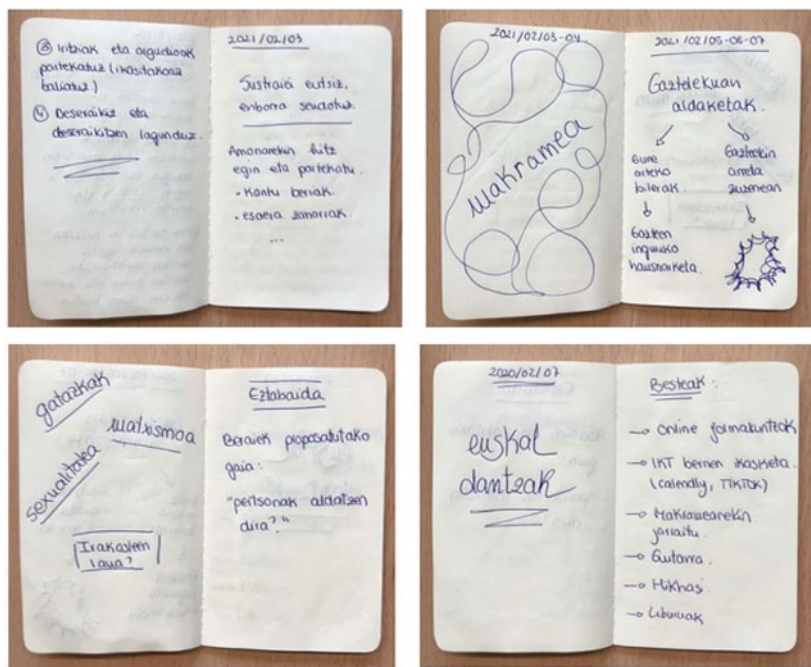 ③ Iritziak eta argudioak
partekatuz (ikasitakoaz
baliatuz)
④ Deseraikiz eta
deseraikitzen lagunduz.
2021/02/03
Sustraiei eutsiz,
enborra sendotuz.
Amonarekin hitz
egin eta partekatu.
• Kantu berriak.
• esaera zaharrak.
...
2021/02/03-04
makramea
2021/02/05-06-07
Gaztelekuan
aldaketak.
Gure
arteko
bilerak.
Gazteen
inguruko
hausnarketa.
Gazteekin
arreta
zuzenean
gatazkak
matxismoa
sexualitatea
Irakasleen
lana?
Eztabaida
Beraiek proposatutako
gaia:
"pertsonak aldatzen
dira?"
2020/02/07
euskal
dantzak
Besteak:
→ Online formakuntzak
→ IKT berrien ikasketa.
(calendly, TikTok)
→ Makramearekin
jarraitu.
→ Guitarra
→ Hikhasi
→ Liburuak